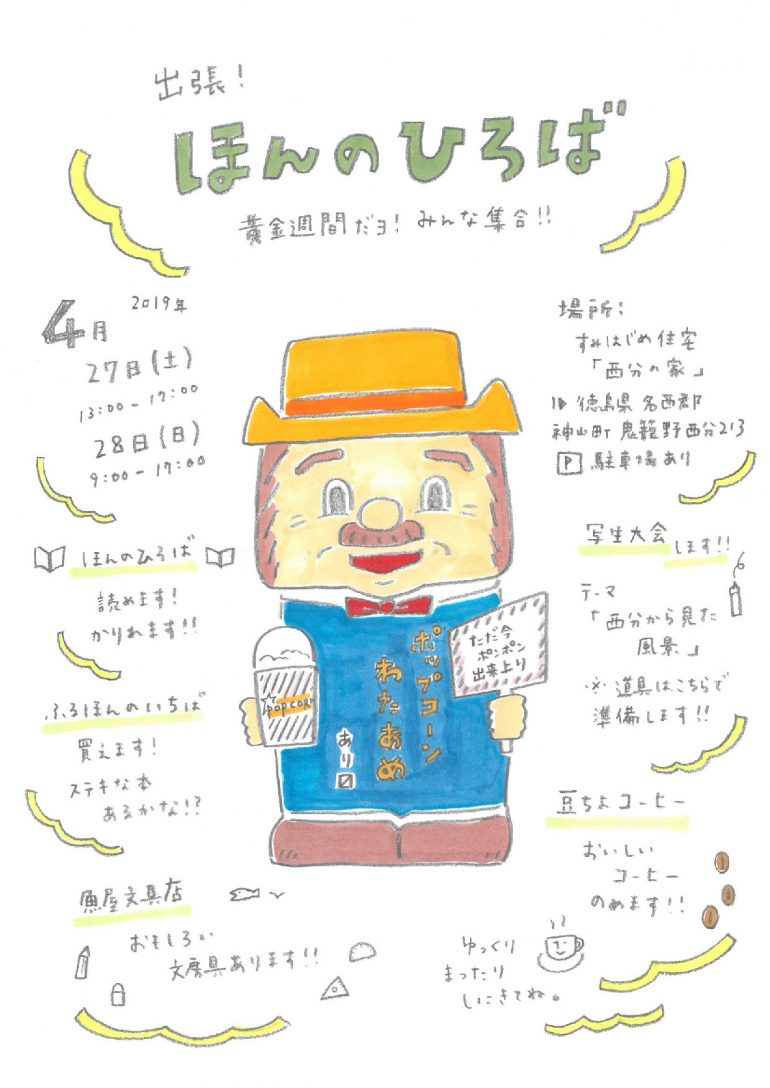 出張!
ほんのひろば
黄金週間だョ! みんな集合!!
2019年
4月
27日(土)
13:00-17:00
28日(日)
9:00-17:00
場所:
すみはじめ住宅
「西分の家」
徳島県 名西郡
神山町 鬼籠野西分213
P 駐車場あり
ほんのひろば
読めます!
かりれます!!
ふるほんのいちば
買えます!
ステキな本
あるかな!?
魚屋文具店
おもしろい
文房具あります!!
ポップコーン
わたあめ
あり〼
POP CORN
ただ今
ポンポン
出来上り
写生大会 します!!
テーマ
「西分から見た
風景」
※ 道具はこちらで
準備します!!
豆ちよコーヒー
おいしい
コーヒー
のめます!!
ゆっくり
まったり
しにきてね。